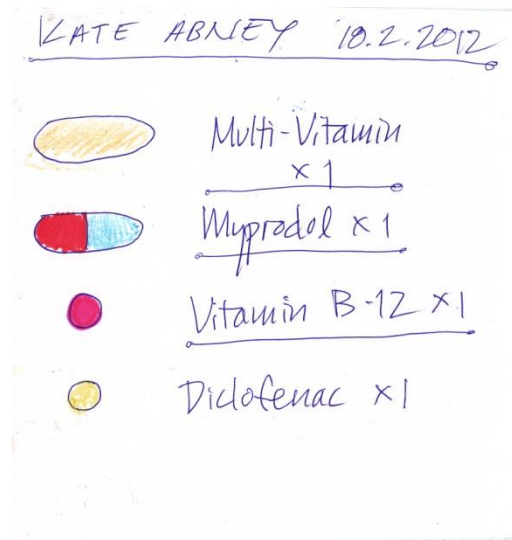 KATE ABNEY 18.2.2012
Multi-Vitamin
x 1
Myprodol x 1
Vitamin B-12 x1
Diclofenac x1